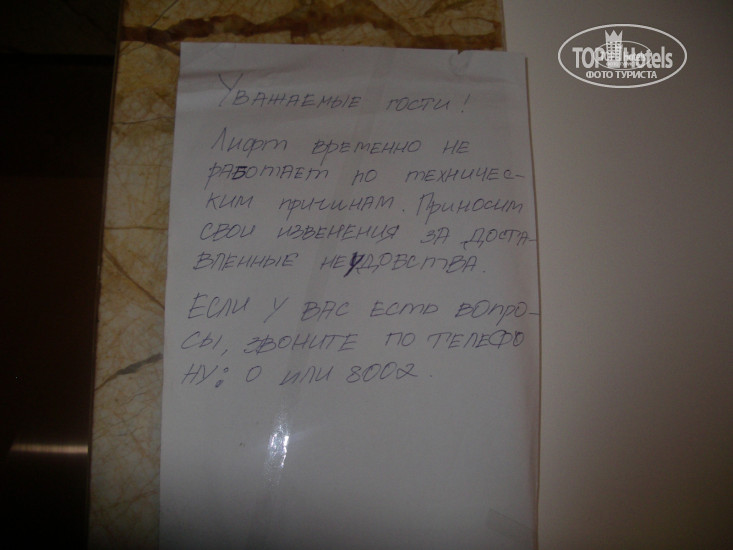 TOP Hotels
ФОТО ТУРИСТА
Уважаемые гости!
Лифт временно не
работает по техничес-
ким причинам. Приносим
свои извенения за доста-
вленные неудобства.
Если у вас есть вопро-
сы, звоните по телефо
ну: 0 или 8002.